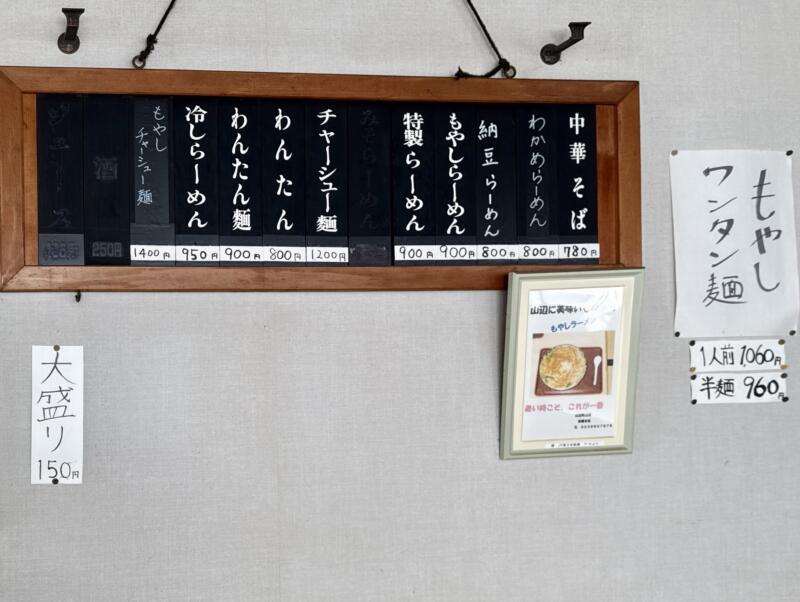 中華そば
780円
わかめらーめん
800円
納豆らーめん
800円
もやしらーめん
900円
特製らーめん
900円
みそらーめん
チャーシュー麺
1200円
わんたん
800円
わんたん麺
900円
冷しらーめん
950円
もやし
チャーシュー麺
1400円
酒
250円
ジュース
もやし
ワンタン麺
1人前 1,060円
半麺 960円
もやしラーメン
暑い時こそ、これが一番
大盛り
150円